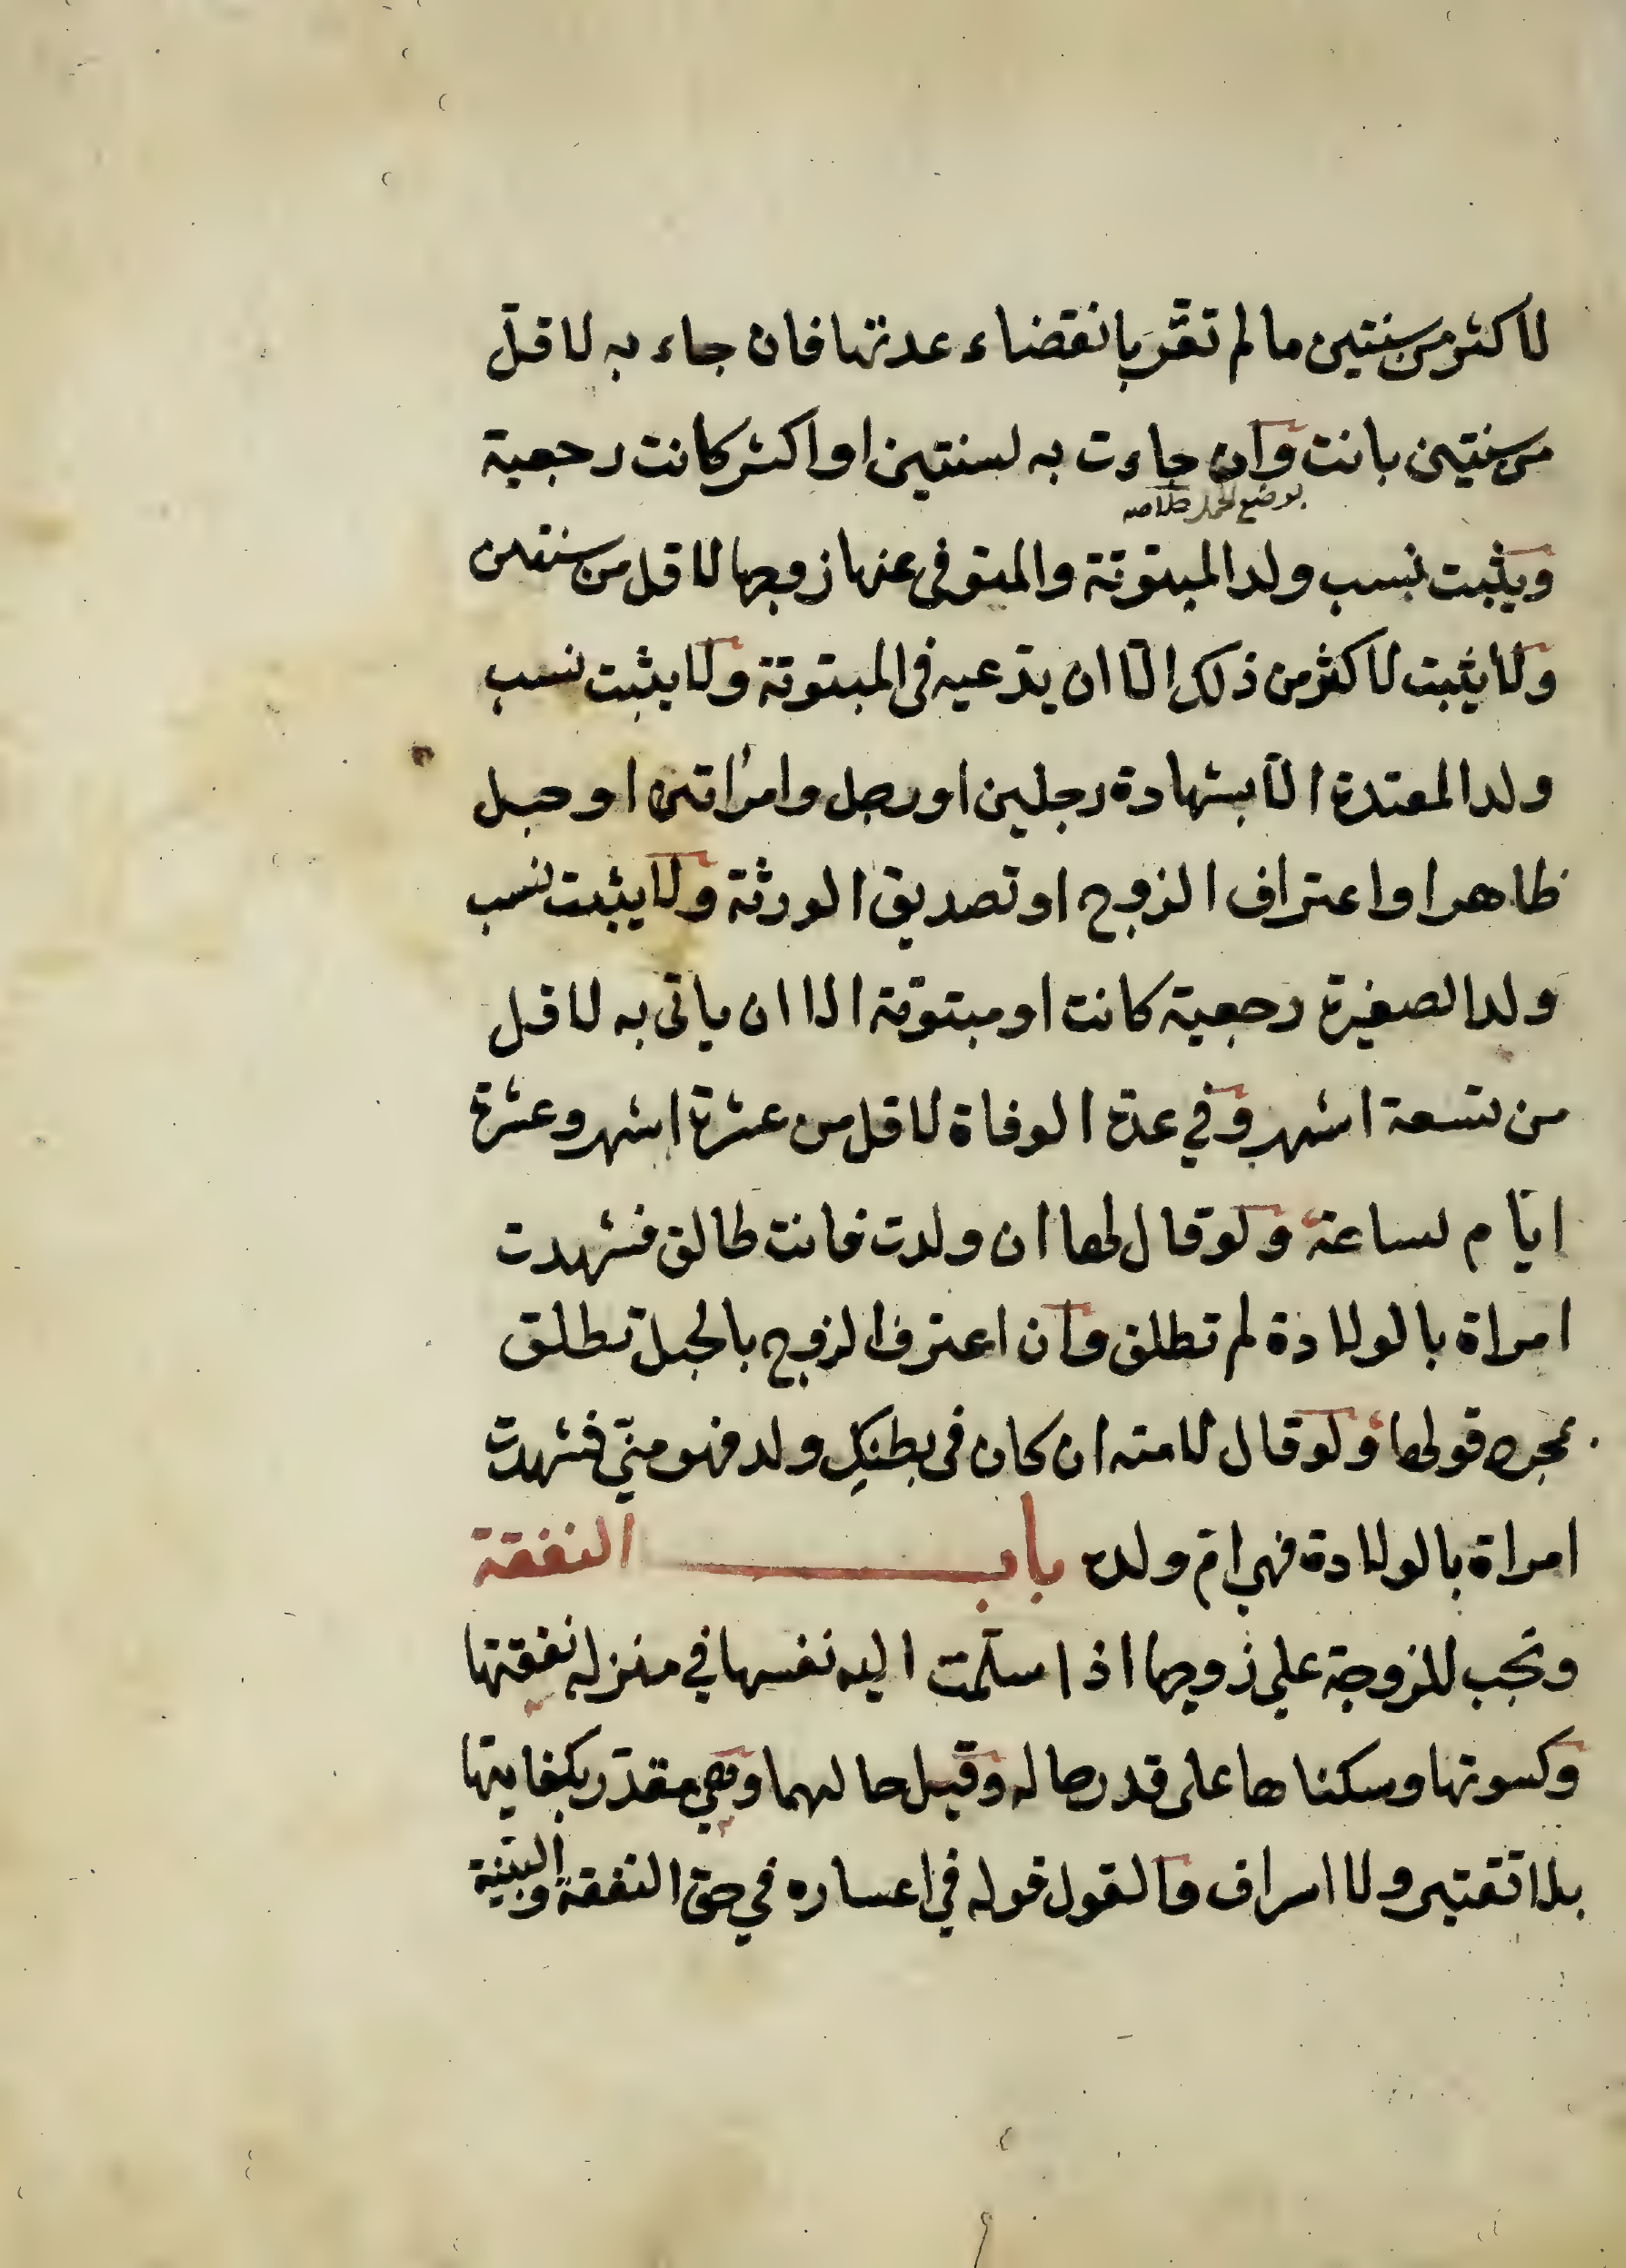 لاكثر من سنتين ما لم تقرّ بانقضاء عدتها فان جاء به لاقلّ
من سنتين بانت وان جاءت به لسنتين او اكثر كانت رجعية
بوضع الحمل
ويثبت نسب ولد المبتوتة والمتوفى عنها زوجها لاقل من سنتين
ولا يثبت لاكثر من ذلك الّا ان يدّعيه فى المبتوتة ولا يثبت نسب
ولد المعتدة الّا بشهادة رجلين او رجل وامراتين او حبل
ظاهر او اعتراف الزوج او تصديق الورثة ولا يثبت نسب
ولد الصغيرة رجعية كانت او مبتوتة الا ان ياتى به لاقل
من تسعة اشهر وفي عدة الوفاة لاقل من عشرة اشهر وعشرة
ايّام بساعة ولو قال لها ان ولدت فانت طالق فشهدت
امراة بالولادة لم تطلق وان اعترف الزوج بالحبل تطلق
بمجرد قولها ولو قال لامته ان كان فى بطنكِ ولد فهو منّي فشهدت
امراة بالولادة فهي امّ ولده باب النفقة
وتجب للزوجة على زوجها اذا سلّمت اليه نفسها في منزله نفقتها
وكسوتها وسكناها على قدر حاله وقيل حالهما وهي مقدّر بكفايتها
بلا تقتير ولا اسراف والقول قوله في اعساره في حق النفقة والبيّنة